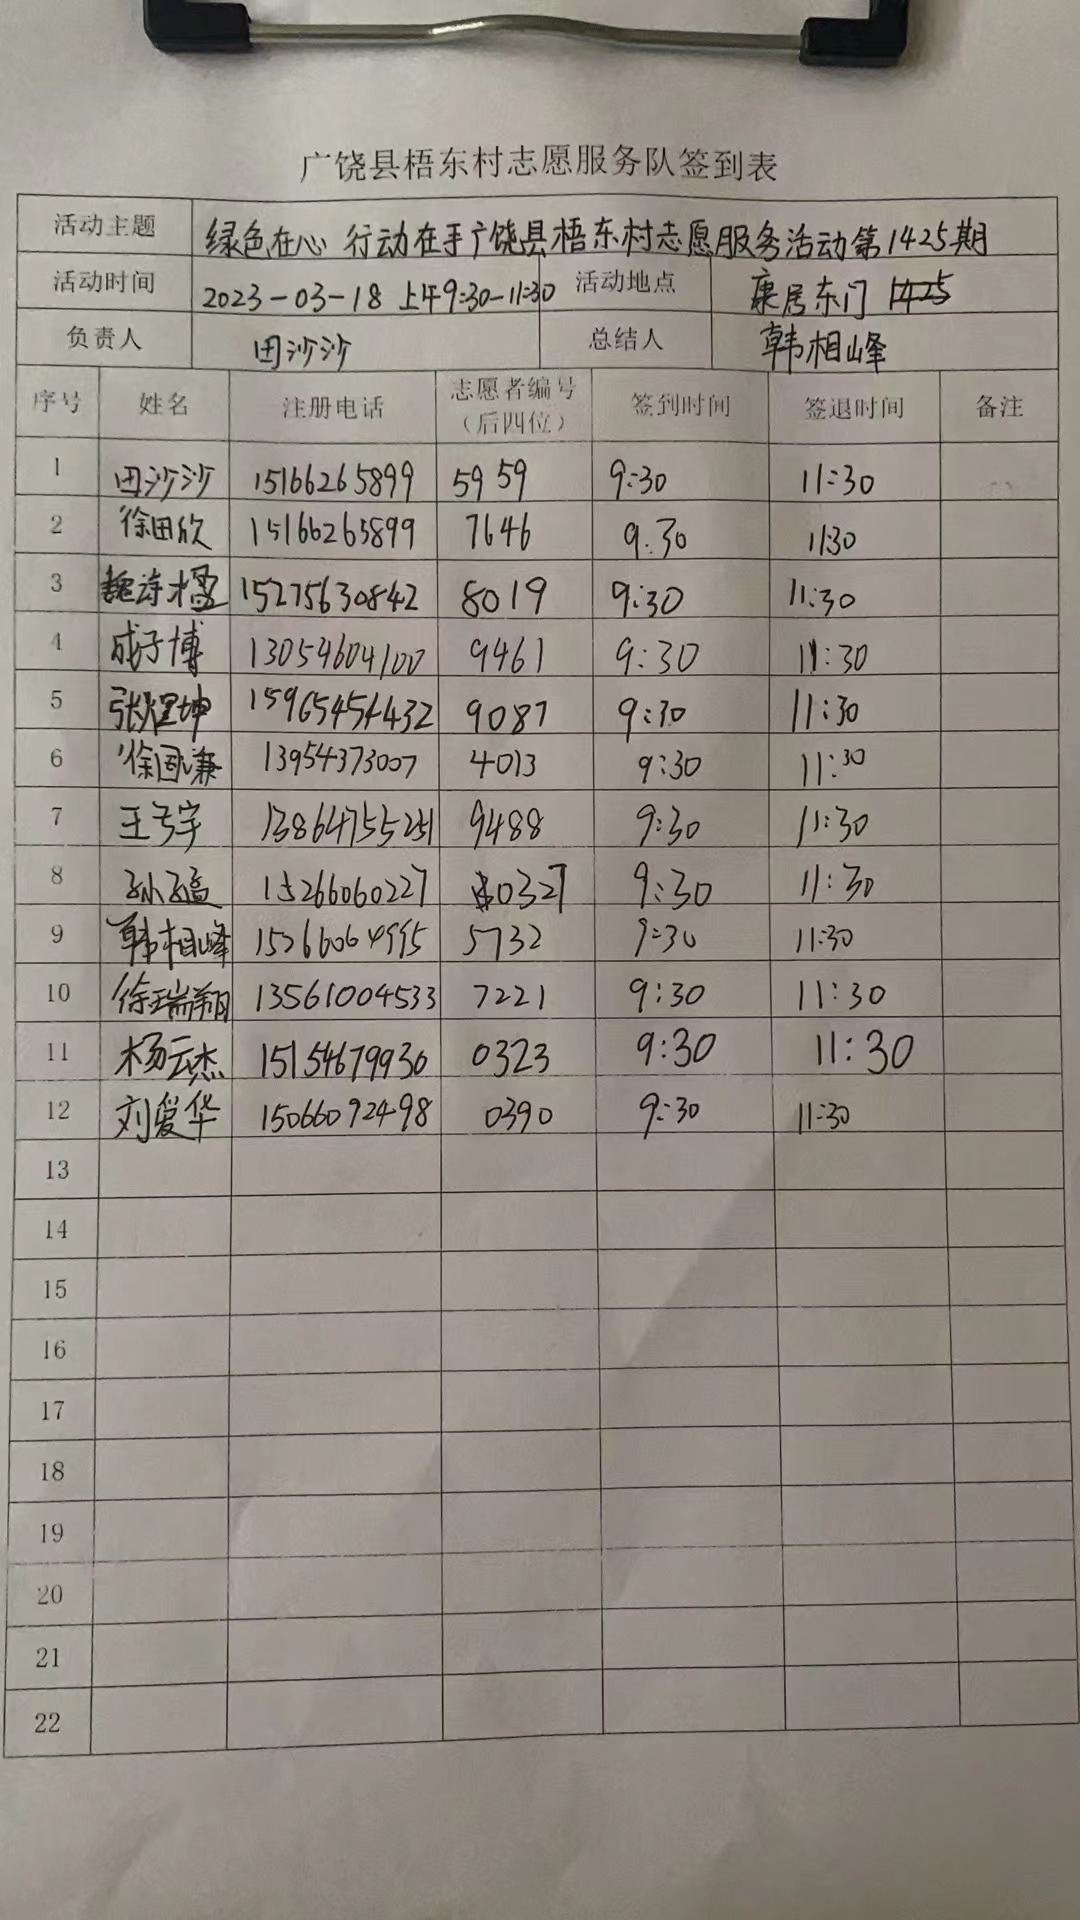 广饶县梧东村志愿服务队签到表
活动主题 绿色在心 行动在手广饶县梧东村志愿服务活动第1425期
活动时间 2023-03-18 上午9:30-11:30 活动地点 康居东门
负责人 田沙沙 总结人 韩相峰
序号 姓名 注册电话 志愿者编号（后四位） 签到时间 签退时间 备注
1 田沙沙 15166265899 5959 9:30 11:30
2 徐田欣 15166265899 7646 9:30 11:30
3 魏诗楹 15275630842 8019 9:30 11:30
4 成子博 13054604100 9461 9:30 11:30
5 张煜坤 15965454432 9087 9:30 11:30
6 徐国濂 13954373007 4013 9:30 11:30
7 王弓宇 13864755251 9488 9:30 11:30
8 孙 15266060227 0327 9:30 11:30
9 韩相峰 15266064995 5732 9:30 11:30
10 徐瑞翔 13561004533 7221 9:30 11:30
11 杨云杰 15154679930 0323 9:30 11:30
12 刘爱华 15066092498 0390 9:30 11:30
13
14
15
16
17
18
19
20
21
22